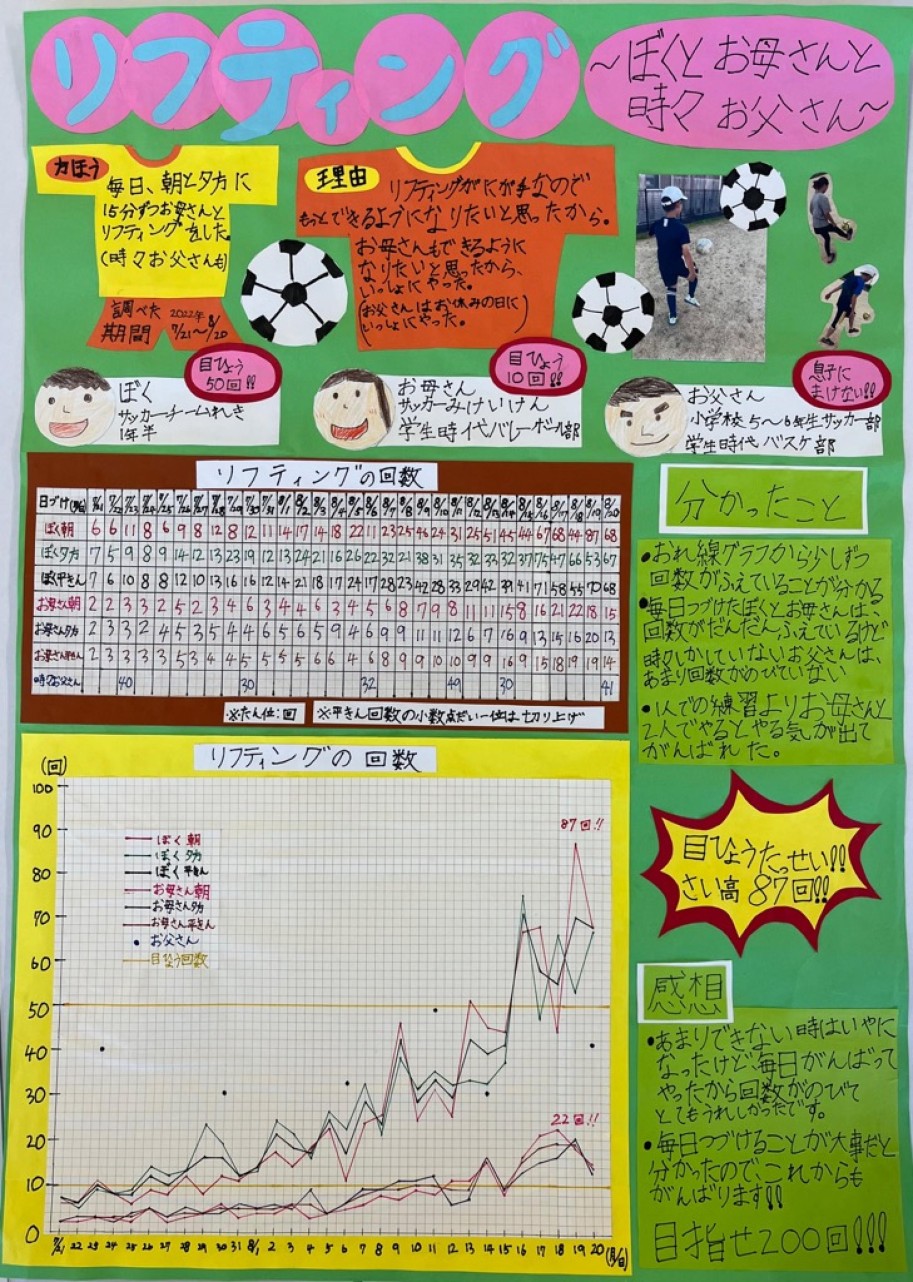 リフティング
～ぼくと お母さんと
時々 お父さん～
方ほう
毎日、朝と夕方に
15分ずつお母さんと
リフティングをした。
(時々お父さんも)
調べた
期間
2022年
7/21～8/20
理由
リフティングがにが手なので
もっとできるようになりたいと思ったから。
お母さんもできるように
なりたいと思ったから、
いっしょにやった。
(お父さんはお休みの日に
いっしょにやった。)
目ひょう
50回!!
ぼく
サッカーチームれき
1年半
目ひょう
10回!!
お母さん
サッカーみけいけん
学生時代バレーボール部
息子に
まけない!!
お父さん
小学校5～6年生サッカー部
学生時代バスケ部
リフティングの回数
日づけ(月/日) 7/21 7/22 7/23 7/24 7/25 7/26 7/27 7/28 7/29 7/30 7/31 8/1 8/2 8/3 8/4 8/5 8/6 8/7 8/8 8/9 8/10 8/11 8/12 8/13 8/14 8/15 8/16 8/17 8/18 8/19 8/20
ぼく朝 6 6 11 8 6 9 8 12 8 12 11 14 17 14 18 22 11 23 25 46 24 31 25 51 45 44 67 68 44 87 68
ぼく夕方 7 5 9 8 9 14 12 13 23 19 12 13 24 21 16 26 22 32 21 38 31 35 32 33 32 37 75 47 66 53 67
ぼく平きん 7 6 10 8 8 12 10 13 16 16 12 14 21 18 17 24 17 28 23 42 28 33 29 42 39 41 71 58 55 70 68
お母さん朝 2 2 3 3 2 5 2 3 4 6 3 4 4 6 3 4 5 6 8 7 9 8 11 11 15 8 16 21 22 18 15
お母さん夕方 2 3 3 2 4 5 3 5 4 4 6 5 6 5 9 4 6 9 9 11 11 12 6 7 16 9 13 15 16 20 13
お母さん平きん 2 3 3 3 3 5 3 4 4 5 5 5 5 6 6 4 6 8 9 9 10 10 9 9 16 9 15 18 19 19 14
時々お父さん 40 30 32 49 30 41
※たん位:回
※平きん回数の小数点だい一位は切り上げ
分かったこと
•おれ線グラフから少しずつ
回数がふえていることが分かる
•毎日つづけたぼくとお母さんは、
回数がだんだんふえているけど
時々しかしていないお父さんは、
あまり回数がのびていない
•1人での練習よりお母さんと
2人でやるとやる気が出て
がんばれた。
リフティングの回数
(回)
100
90
80
70
60
50
40
30
20
10
0
ぼく朝
ぼく夕方
ぼく平きん
お母さん朝
お母さん夕方
お母さん平きん
お父さん
目ひょう回数
87回!!
22回!!
7/21 22 23 24 25 26 27 28 29 30 31 8/1 2 3 4 5 6 7 8 9 10 11 12 13 14 15 16 17 18 19 20 (月/日)
目ひょうたっせい!!
さい高 87回!!
感想
•あまりできない時はいやに
なったけど、毎日がんばって
やったから回数がのびて
とてもうれしかったです。
•毎日つづけることが大事だと
分かったので、これからも
がんばります!!
目指せ200回!!!